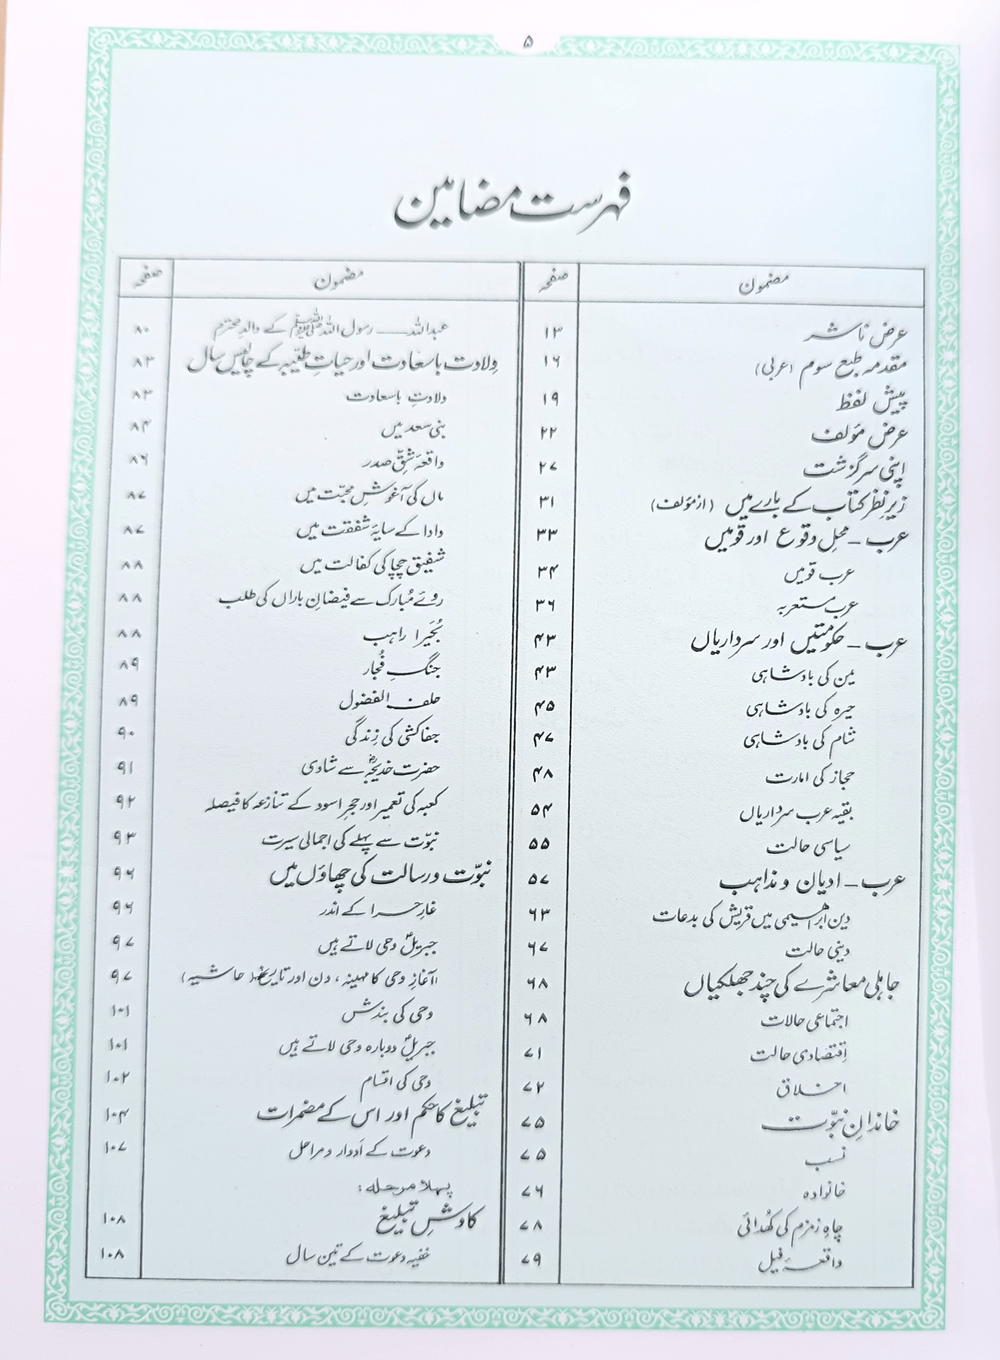 ۵
فہرست مضامین
مضمون صفحہ
عرض ناشر ۱۳
مقدمہ طبع سوم (عربی) ۱۶
پیش لفظ ۱۹
عرض مؤلف ۲۲
اپنی سرگزشت ۲۷
زیرِ نظر کتاب کے بارے میں (از مؤلف) ۳۱
عرب – محلِ وقوع اور قومیں ۳۳
عرب قومیں ۳۴
عرب مستعربہ ۳۶
عرب – حکومتیں اور سرداریاں ۴۳
یمن کی بادشاہی ۴۳
حیرہ کی بادشاہی ۴۵
شام کی بادشاہی ۴۷
حجاز کی امارت ۴۸
بقیہ عرب سرداریاں ۵۴
سیاسی حالت ۵۵
عرب – ادیان و مذاہب ۵۷
دین ابراہیمی میں قریش کی بدعات ۶۳
دینی حالت ۶۷
جاہلی معاشرے کی چند جھلکیاں ۶۸
اجتماعی حالات ۶۸
اقتصادی حالت ۷۱
اخلاق ۷۲
خاندانِ نبوّت ۷۵
نسب ۷۵
خانوادہ ۷۶
چاہِ زمزم کی کُھدائی ۷۸
واقعۂ فیل ۷۹
مضمون صفحہ
عبداللہ — رسول اللہ ﷺ کے والدِ محترم ۸۰
وِلادت باسعادت اور حیاتِ طیّبہ کے چالیس سال ۸۳
ولادتِ باسعادت ۸۳
بنی سعد میں ۸۴
واقعۂ شقِّ صدر ۸۶
ماں کی آغوشِ محبّت میں ۸۷
دادا کے سایۂ شفقت میں ۸۷
شفیق چچا کی کفالت میں ۸۸
روئے مُبارک سے فیضانِ باراں کی طلب ۸۸
بُحَیرا راہب ۸۸
جنگِ فُجار ۸۹
حلف الفضول ۸۹
جفاکشی کی زندگی ۹۰
حضرت خدیجہؓ سے شادی ۹۱
کعبہ کی تعمیر اور حجرِ اسود کے تنازعہ کا فیصلہ ۹۲
نبوّت سے پہلے کی اجمالی سیرت ۹۳
نبوّت و رسالت کی چھاؤں میں ۹۶
غارِ حرا کے اندر ۹۶
جبریلؑ وحی لاتے ہیں ۹۷
(آغازِ وحی کا مہینہ، دن اور تاریخ) (حاشیہ) ۹۷
وحی کی بندش ۱۰۱
جبریلؑ دوبارہ وحی لاتے ہیں ۱۰۱
وحی کی اقسام ۱۰۲
تبلیغ کا حکم اور اس کے مضمرات ۱۰۴
دعوت کے اَدوار و مراحل ۱۰۷
پہلا مرحلہ:
کاوشِ تبلیغ ۱۰۸
خفیہ دعوت کے تین سال ۱۰۸